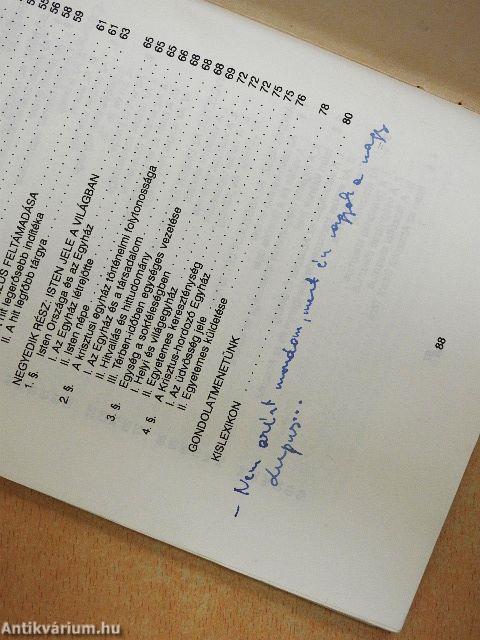 59
ZUS FELTÁMADÁSA
I. A hit legerősebb indítéka
II. A hit legfőbb tárgya
NEGYEDIK RÉSZ: ISTEN JELE A VILÁGBAN . . . 61
1. §. Isten Országa és az Egyház . . . 61
I. Az Egyház létrejötte . . . 63
II. Isten népe
2. §. A krisztusi egyház történelmi folytonossága . . . 65
I. Az Egyház és a társadalom . . . 65
II. Hitvallás és hittudomány . . . 65
III. Térben-időben egységes vezetése . . . 66
3. §. Egység a sokféleségben . . . 68
I. Helyi és világegyház . . . 68
II. Egyetemes kereszténység . . . 69
4. §. A Krisztus-hordozó Egyház . . . 72
I. Az üdvösség jele . . . 72
II. Egyetemes küldetése . . . 75
GONDOLATMENETÜNK . . . 78
KISLEXIKON . . . 80
– Nem azért mondom, mert én vagyok a nagy
Lupus...
88
Antikvárium.hu